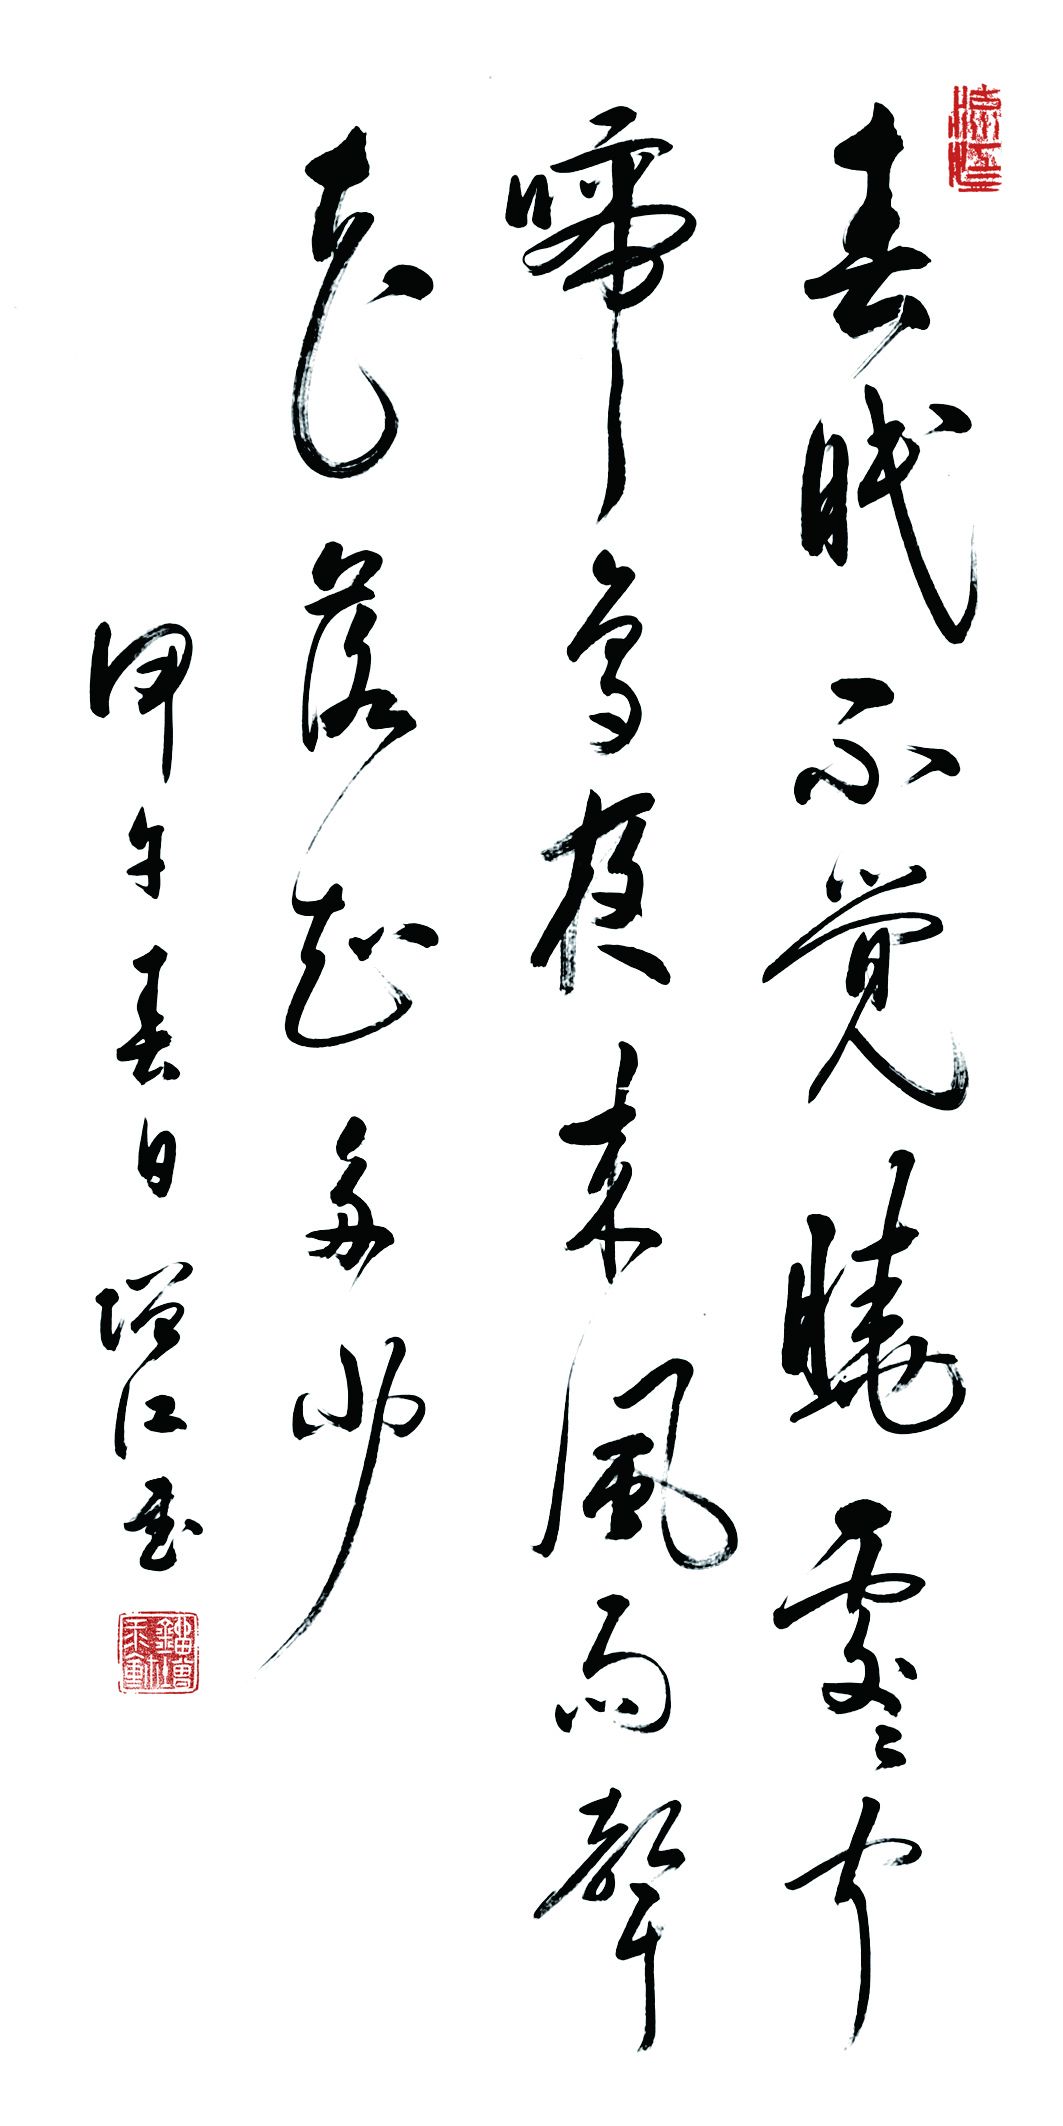 春眠不覺曉處々聞
啼鳥夜来風雨聲
花落知多少
甲午春日增江書